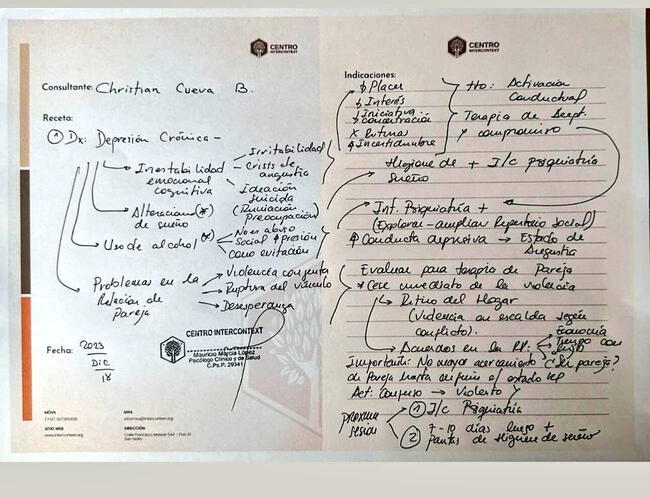 CENTRO
INTERCONTEXT
Consultante: Christian Cueva B.
Receta:
① Dx: Depresión Crónica -
Inestabilidad
emocional
cognitiva
Irritabilidad
Crisis de
angustia
Ideación
suicida
(Rumiación
Preocupación)
Alteraciones (*)
de sueño
Uso de alcohol (*)
No es abuso
Social ↑ presión
como evitación
Problemas en la
Relación de
Pareja
Violencia conjunta
Ruptura del vínculo
Desesperanza
Fecha: 2023
Dic
18
CENTRO INTERCONTEXT
Mauricio Murcia López
Psicólogo Clínico y de Salud
C.Ps.P. 29341
MÓVIL
MAIL
informes@intercontext.org
SITIO WEB
www.intercontext.org
DIRECCIÓN
San Isidro
CENTRO
INTERCONTEXT
Indicaciones:
↓ Placer
↓ Interés
↓ Iniciativa
Concentración
X Rutina
↑ Incertidumbre
tto: Activación
Conductual
Terapia de Acept.
y compromiso
Higiene de + I/c psiquiatría
Sueño
Int. Psiquiatría +
(Explorar - ampliar Repertorio Social)
↑ Conducta depresiva → Estado de
Angustia
Evaluar para terapia de Pareja
* Cese inmediato de la violencia
Retiro del Hogar
(violencia en escalda según
conflicto).
Acuerdos en la
Economía
Tiempo con
Importante: No mayor acercamiento
de pareja hasta
¿Ser pareja?
Act: Confuso → Violento
próxima
sesión
① I/c Psiquiatría
② 7-10 días luego +
Pautas de Higiene de sueño